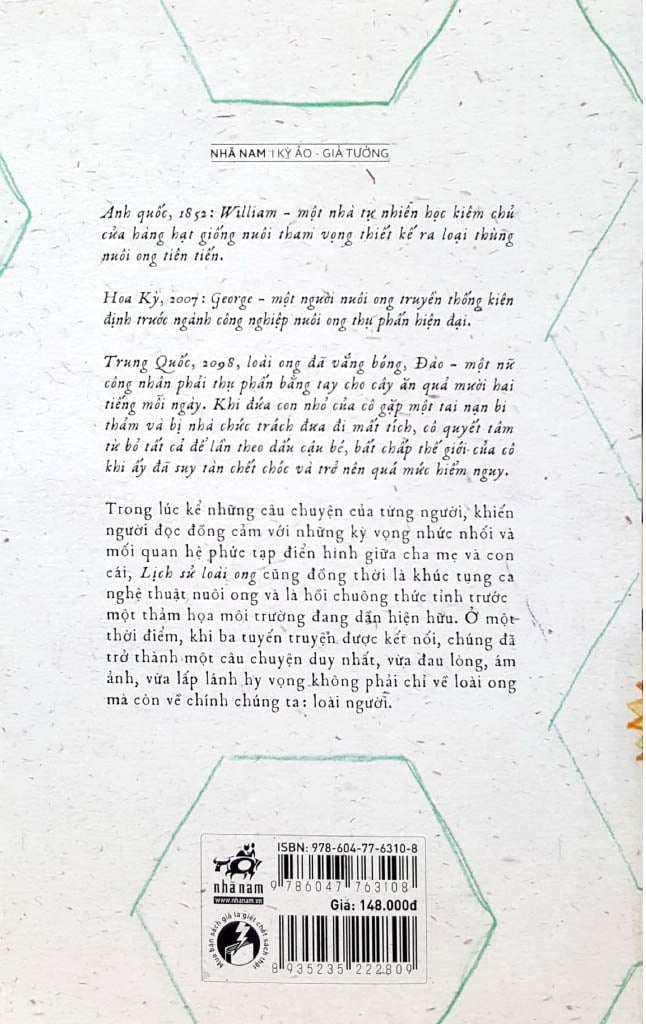 NHÃ NAM | KỲ ẢO - GIẢ TƯỞNG
Anh quốc, 1852: William – một nhà tự nhiên học kiêm chủ
cửa hàng hạt giống nuôi tham vọng thiết kế ra loại thùng
nuôi ong tiên tiến.
Hoa Kỳ, 2007: George – một người nuôi ong truyền thống kiên
định trước ngành công nghiệp nuôi ong thụ phấn hiện đại.
Trung Quốc, 2098, loài ong đã vắng bóng, Đào – một nữ
công nhân phải thụ phấn bằng tay cho cây ăn quả mười hai
tiếng mỗi ngày. Khi đứa con nhỏ của cô gặp một tai nạn bi
thảm và bị nhà chức trách đưa đi mất tích, cô quyết tâm
từ bỏ tất cả để lần theo dấu cậu bé, bất chấp thế giới của cô
khi ấy đã suy tàn chết chóc và trở nên quá mức hiểm nguy.
Trong lúc kể những câu chuyện của từng người, khiến
người đọc đồng cảm với những kỳ vọng nhức nhối và
mối quan hệ phức tạp điển hình giữa cha mẹ và con
cái, Lịch sử loài ong cũng đồng thời là khúc tụng ca
nghệ thuật nuôi ong và là hồi chuông thức tỉnh trước
một thảm họa môi trường đang dần hiện hữu. Ở một
thời điểm, khi ba tuyến truyện được kết nối, chúng đã
trở thành một câu chuyện duy nhất, vừa đau lòng, ám
ảnh, vừa lấp lánh hy vọng không phải chỉ về loài ong
mà còn về chính chúng ta: loài người.
ISBN: 978-604-77-6310-8
nhã nam
www.nhanam.vn
9 786047 763108
Giá: 148.000đ
Mua bán sách giả là giết chết sách thật
8 935235 222809